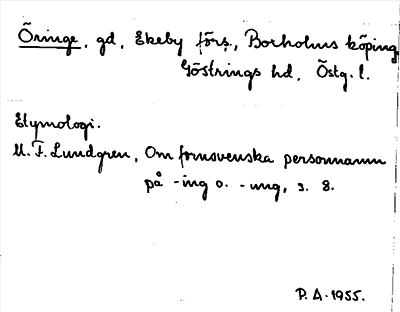 Öringe, gd, Ekeby förs., Borholms köping,
Göstrings hd, Östg. l.
Etymologi.
M. F. Lundgren, Om fornsvenska personnamn
på -ing o. -ung, s. 8.
P. A. 1955.